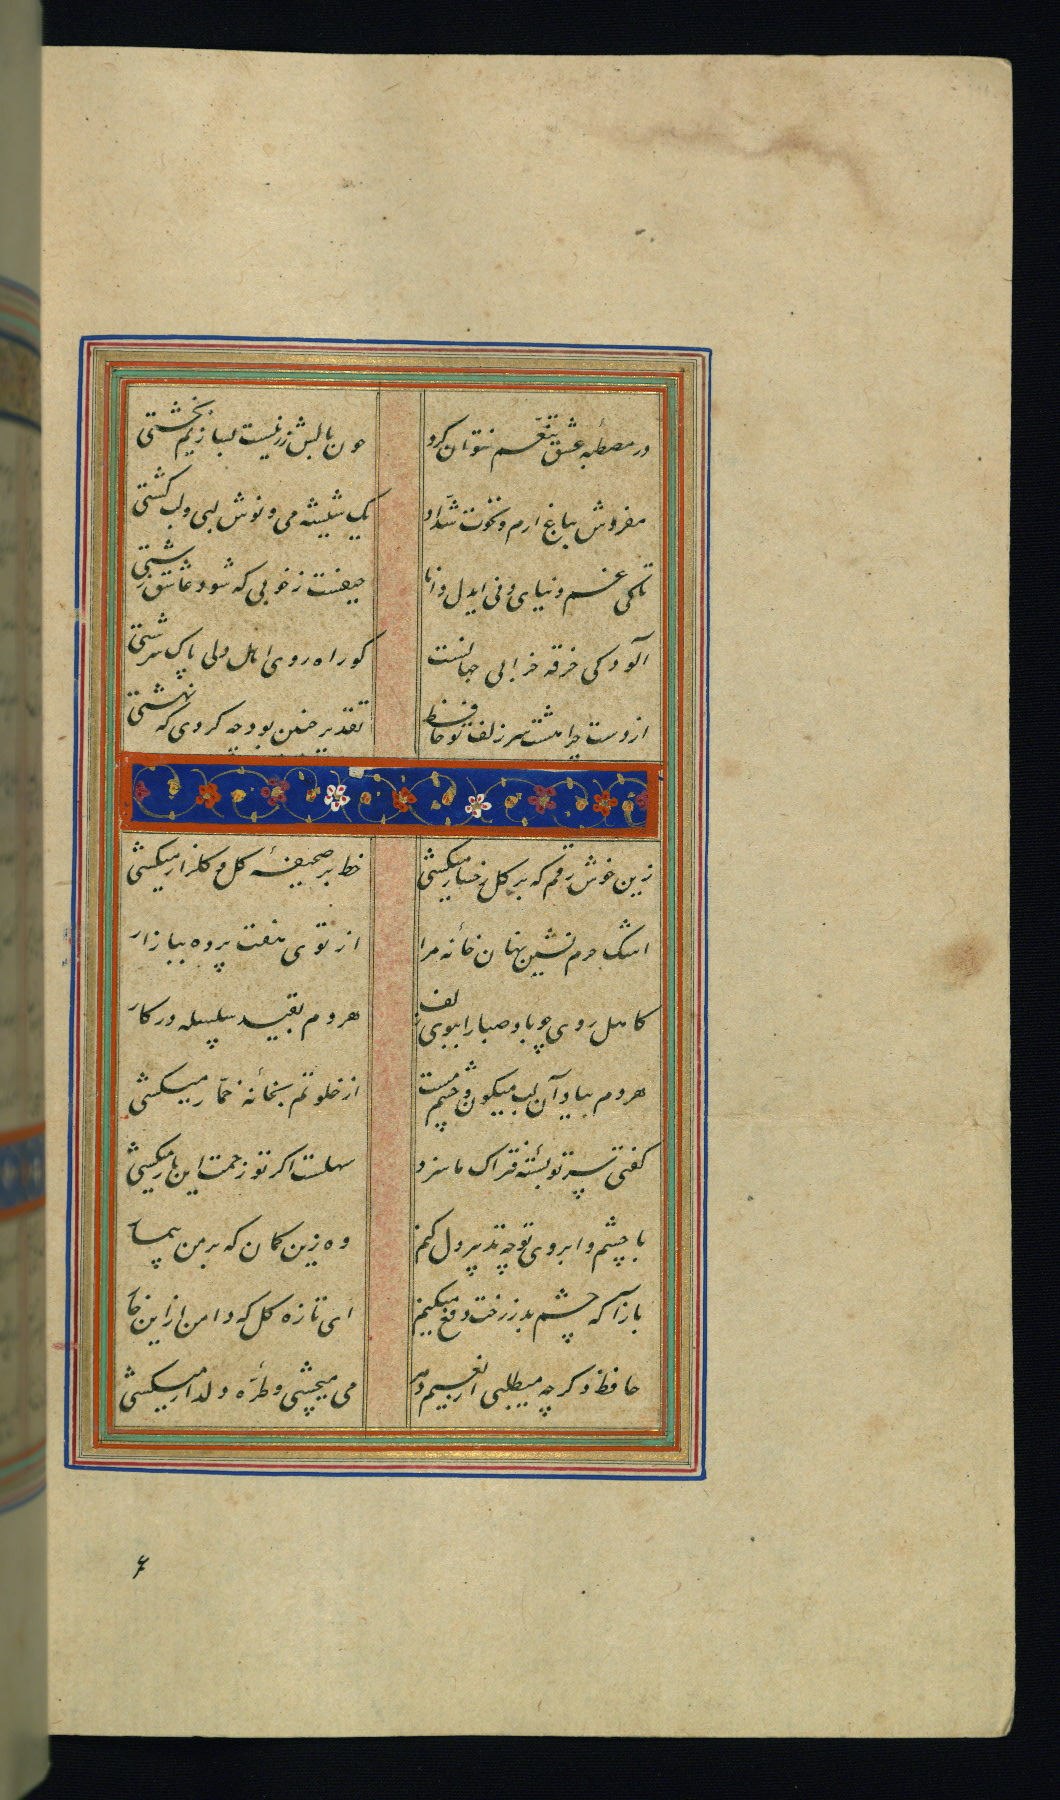 در مصطبه عشق تنعّم نتوان کرد چون بالش زر نیست بسازیم بخشتی
مفروش بباغ ارم و نخوت شدّاد یک شیشه می و نوش لبی و لب کشتی
تا کی غم دنیای دنی ای دل دانا حیفست ز خوبی که شود عاشق زشتی
آلودکی خرقه خرابی جهانست کو راه روی اهل دلی پاک سرشتی
از دست چرا هشت سر زلف تو حافظ تقدیر چنین بود چه کردی که نهشتی
زین خوش رقم که بر کل رخسار میکشی خط بر صحیفهٔ کل و کلزار میکشی
اشک حرم نشین نهان خانه مرا از توی هفت پرده ببازار
کاهل روی چو باد صبا را ببوی زلف هردم بقید سلسله در کار
هردم بیاد آن لب میکون و چشم مست از خلوتم بخانهٔ خمّار میکشی
کفتی سر تو بستهٔ فتراک ما سزد سهلست اکر تو زحمت این بار میکشی
با چشم و ابروی تو چه تدبیر دل کنم وه زین کمان که بر من بیمار
بازآ که چشم بد ز رخت دفع میکنم ای تازه کل که دامن ازین خار
حافظ دکر چه میطلبی از نعیم دهر می میچشی و طرّه دلدار میکشی
۶